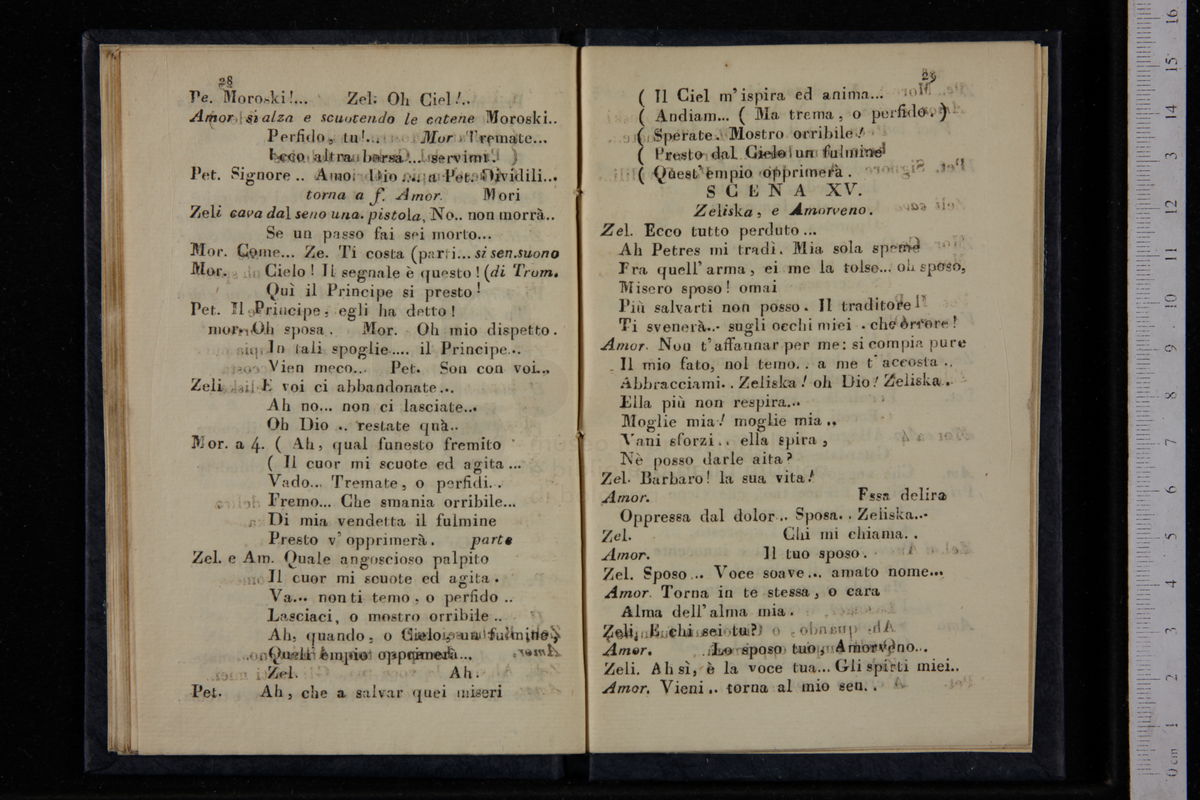 28
Pe. Moroski!... Zel. Oh Ciel!..
Amor si alza e scuotendo le catene Moroski..
Perfido, tu!... Mor. Tremate...
Ecco altra borsa... servimi.
Pet. Signore .. Amo. Dio ... a Pet. Dividili...
torna a f. Amor. Mori
Zeli cava dal seno una. pistola, No.. non morrà..
Se un passo fai sei morto...
Mor. Come... Ze. Ti costa (parti... si sen.suono
Mor. Cielo! Il segnale è questo! (di Trom.
Quì il Principe si presto!
Pet. Il Principe, egli ha detto!
Oh sposa. Mor. Oh mio dispetto.
In tali spoglie..... il Principe..
Vien meco... Pet. Son con voi...
Zeli E voi ci abbandonate...
Ah no... non ci lasciate...
Oh Dio .. restate quà..
Mor. a 4. ( Ah, qual funesto fremito
( Il cuor mi scuote ed agita ...
Vado... Tremate, o perfidi..
Fremo... Che smania orribile...
Di mia vendetta il fulmine
Presto v' opprimerà. parte
Zel. e Am. Quale angoscioso palpito
Il cuor mi scuote ed agita.
Va... non ti temo, o perfido ..
Lasciaci, o mostro orribile ..
Ah, quando, o Cielo, un fulmine
Quell' empio opprimerà...
Zel. Ah.
Pet. Ah, che a salvar quei miseri
29
( Il Ciel m' ispira ed anima...
( Andiam... ( Ma trema, o perfido. )
( Sperate. Mostro orribile!
( Presto dal Cielo un fulmine
( Quest' empio opprimerà.
SCENA XV.
Zeliska, e Amorveno.
Zel. Ecco tutto perduto ...
Ah Petres mi tradì. Mia sola speme
Fra quell' arma, ei me la tolse... oh sposo,
Misero sposo! omai
Più salvarti non posso. Il traditore
Ti svenerà... sugli occhi miei . che orrore!
Amor. Non t' affannar per me: si compia pure
Il mio fato, nol temo. . a me t' accosta ..
Abbracciami. . Zeliska! oh Dio! Zeliska..
Ella più non respira...
Moglie mia! moglie mia ..
Vani sforzi .. ella spira,
Nè posso darle aita?
Zel. Barbaro! la sua vita!
Amor. Essa delira
Oppressa dal dolor .. Sposa. . Zeliska...
Zel. Chi mi chiama. .
Amor. Il tuo sposo.
Zel. Sposo... Voce soave... amato nome...
Amor. Torna in te stessa, o cara
Alma dell' alma mia.
Zeli. E chi sei tu?
Amor. Lo sposo tuo, Amorveno...
Zeli. Ah sì, è la voce tua... Gli spirti miei..
Amor. Vieni .. torna al mio sen. .